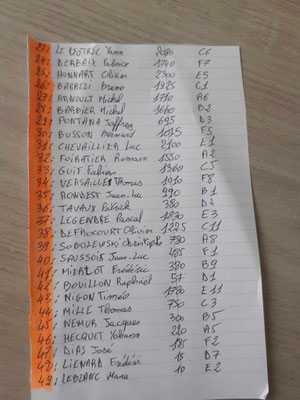 23: LE RESTREC Yvan 2080 C6
24: DERBAIX Fabrice 1740 F7
25: HONNART Olivier 2300 E5
26: Bruno 1925 C1
27: ARNOULT Michel 1710 A6
28: BARBIER Michel 1660 B2
29: FONTANA Joffrey 695 D3
30: BUSSON Bernard 1015 F5
31: CHEVAILLIER Luc 2100 E1
32: FOIRATIER Romain 1550 A2
33: GUIF Fabien 1360 C5
34: VERSAILLES Thomas 1010 F8
35: RONDEST Jean-Luc 990 B1
36: TAVAUX Patrick 380 D4
37: LEGENDRE Pascal 1830 E3
38: DEFROCOURT Olivier 1225 C11
39: SOBOLEWSKI Christophe 780 A8
40: SAUSSOIS Jean-Luc 485 F1
41: Frédéric 380 B9
42: BOUILLON Raphaël 57 D1
43: NIGON Timéo 1780 E11
44: MILLE Thomas 750 C3
45: NEMUR Jacques 300 B5
46: HECQUET Yohann 220 A5
47: DIAS José 185 F2
48: LIENARD Frédéric 15 D7
49: LEBLANC 10 E2